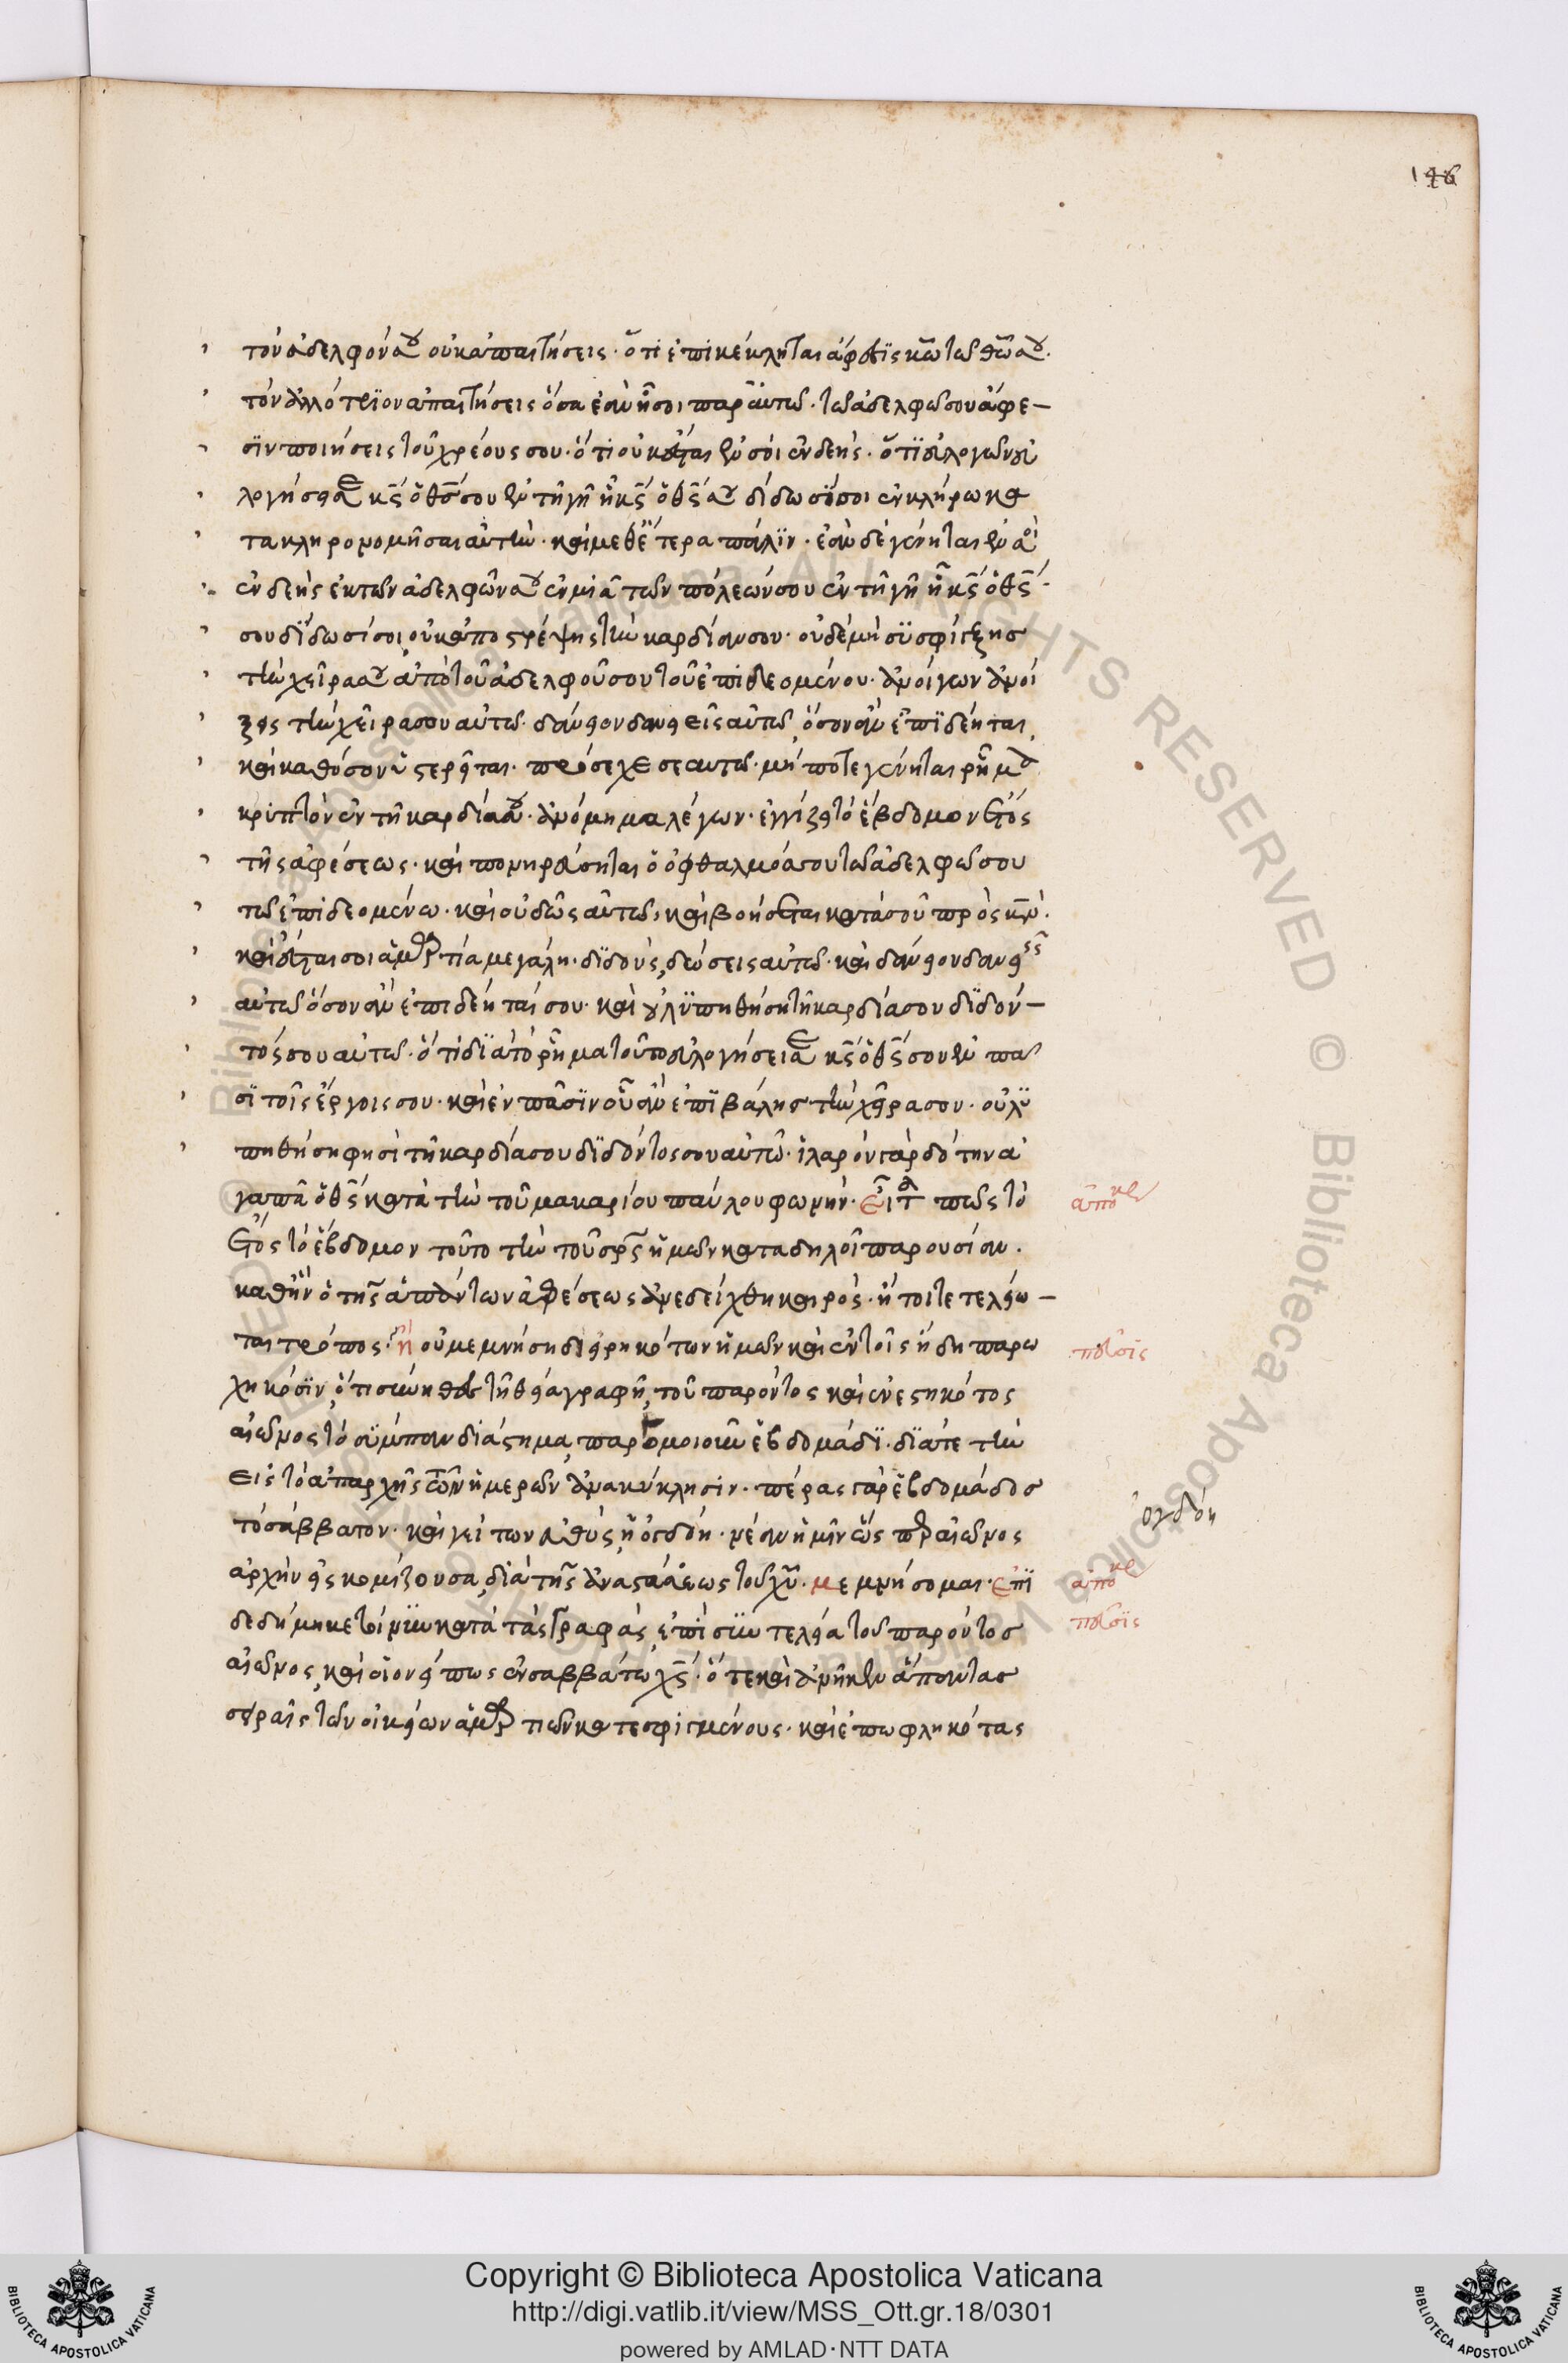 146
τὸν ἀδελφόν σου οὐκ ἀπαιτήσεις· ὅτι ἐπικέκληται ἄφεσις κω τῶ θω σου.
τὸν ἀλλότριον ἀπαιτήσεις ὅσα ἐὰν ἦ σοι παρ' αὐτῶ· τῶ ἀδελφῶ σου ἄφε-
σιν ποιήσεις τοῦ χρέους σου· ὅτι οὐκ ἔσται ἐν σοὶ ἐνδεής· ὅτι εὐλογῶν εὐ
λογήσει σε κς ὁ θς σου ἐν τῆ γῆ ἧ κς ὁ θς σου δίδωσί σοι ἐν κλήρω κα
τακληρονομῆσαι αὐτήν· καὶ μεθ' ἕτερα πάλιν· ἐὰν δὲ γένηται ἐν σοὶ
ἐνδεὴς ἐκ τῶν ἀδελφῶν σου ἐν μιᾶ τῶν πόλεών σου ἐν τῆ γῆ ἧ κς ὁ θς
σου δίδωσί σοι, οὐκ ἀποστρέψης τὴν καρδίαν σου· οὐδὲ μὴ συσφίγξης
τὴν χεῖρα σου ἀπὸ τοῦ ἀδελφοῦ σου τοῦ ἐπιδεομένου· ἀνοίγων ἀνοί
ξεις τὴν χεῖρα σου αὐτῶ· δάνειον δανειεῖς αὐτῶ, ὅσον ἂν ἐπιδέηται,
καὶ καθόσον ὑστερεῖται· πρόσεχε σεαυτῶ· μή ποτε γένηται ῥῆμα
κρυπτὸν ἐν τῆ καρδία σου· ἀνόμημα λέγων· ἐγγίζει τὸ ἕβδομον ἔτος
τῆς ἀφέσεως· καὶ πονηρεύσηται ὁ ὀφθαλμός σου τῶ ἀδελφῶ σου
τῶ ἐπιδεομένω· καὶ οὐ δῶς αὐτῶ, καὶ βοήσεται κατὰ σοῦ πρὸς κν.
καὶ ἔσται σοι ἁμαρτία μεγάλη· διδοὺς, δώσεις αὐτῶ· καὶ δάνειον δανειεῖς
αὐτῶ ὅσον ἂν ἐπιδέηταί σου· καὶ οὐ λυπηθήση τῆ καρδία σου διδόν-
τός σου αὐτῶ· ὅτι διὰ τὸ ῥῆμα τοῦτο εὐλογήσει σε κς ὁ θς σου ἐν πᾶ
σι τοῖς ἔργοις σου· καὶ ἐν πᾶσιν οὗ ἂν ἐπιβάλης τὴν χεῖρα σου· οὐ λυ
πηθήση φησὶ τῆ καρδία σου διδόντος σου αὐτῶ· ἱλαρὸν γὰρ δότην ἀ
γαπᾶ ὁ θς κατὰ τὴν τοῦ μακαρίου παύλου φωνήν· εἶτα πῶς τὸ
ἔτος τὸ ἕβδομον τοῦτο τὴν τοῦ σρς ἡμῶν καταδηλοῖ παρουσίαν.
καθ' ἣν ὁ τῆς ἁπάντων ἀφέσεως ἀνεδείχθη καιρός· ἤτοι τετελείω-
ται τρόπος· ἢ οὐ μεμνήση διειρηκότων ἡμῶν καὶ ἐν τοῖς ἤδη παρω
χηκόσιν, ὅτι σύνηθες τῆ θεία γραφῆ, τοῦ παρόντος καὶ ἐνεστηκότος
αἰῶνος τὸ σύμπαν διάστημα, παρομοιοῦν ἑβδομάδι· διά τε τὴν
εἰς τὸ ἀπαρχῆς τῶν ἡμερῶν ἀνακύκλησιν· πέρας γὰρ ἑβδομάδος
τὸ σάββατον· καὶ γείτων εὐθὺς, ἡ ὀγδόη· νέαν ἡμῖν ὥσπερ αἰῶνος
ἀρχὴν εἰσκομίζουσα, διὰ τῆς ἀναστάσεως τοῦ χυ· μεμνήσομαι· ἐπι
δεδήμηκε τοίνυν κατὰ τὰς γραφάς, ἐπὶ συντελεία τοῦ παρόντος
αἰῶνος, καὶ οἷον εἴπως ἐν σαββάτω χς· ὅτε καὶ ἀνῆκεν ἅπαντας
σειραῖς τῶν οἰκείων ἁμαρτιῶν κατεσφιγμένους· καὶ ἐπωφληκότας
ἀπόκρ
πεῦσις
ὀγδόη
ἀπόκρ
πεῦσις
Copyright © Biblioteca Apostolica Vaticana
http://digi.vatlib.it/view/MSS_Ott.gr.18/0301
powered by AMLAD·NTT DATA